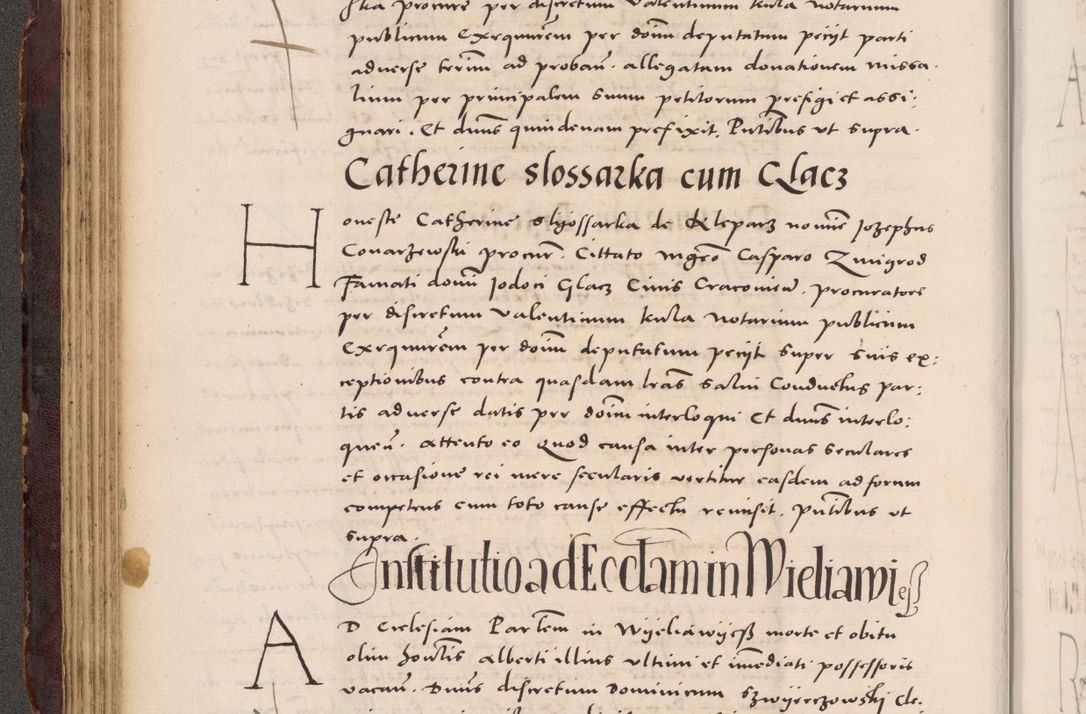 ſtia procure per discretum Valentinum kula notarium
publicum Exequurem per doim deputatum peciit parti
adverse terim ad proban. allegatam donationem missa
lium per principalem suum petitorum prefigi et assi:
gnari. Et dnus quindenam prefixit. Pntibus ut supra.
Catherine slossarka cum Glacz
Honeste Catherine slyossarka de Kleparz nomine Jozephus
Conarzewski procur. Cittato mgro Casparo Zmigrod
Famati domi Jodoci Glacz Civis Cracovien. procuratore
per discretum Valentinum kula notarium publicum
Exequurem per doim deputatum peciit super suis ex:
ceptionibus contra quasdam lras salvi Conductus par:
tis adverse datis per doim interloqui Et dnus interlo:
quen. Attento eo Quod causa inter personas seculares
et occasione rei mere secularis vertitur easdem ad forum
competens cum toto cause effectu remisit. Pntibus ut
supra.
Institutio ad Eccliam in Wieliawiess
AD Ecclesiam Parlem in Wyeliawyess morte et obitu
olim honlis Alberti illius ultimi et imediati possessoris
vacan. Dnus discretum Dominicum Szwyerczowski Cle.